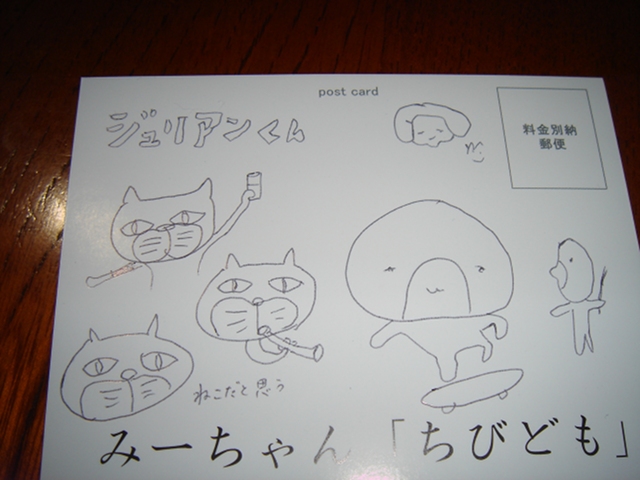 post card
ジュリアンくん
料金別納
郵便
ねこだと思う
みーちゃん「ちびども」